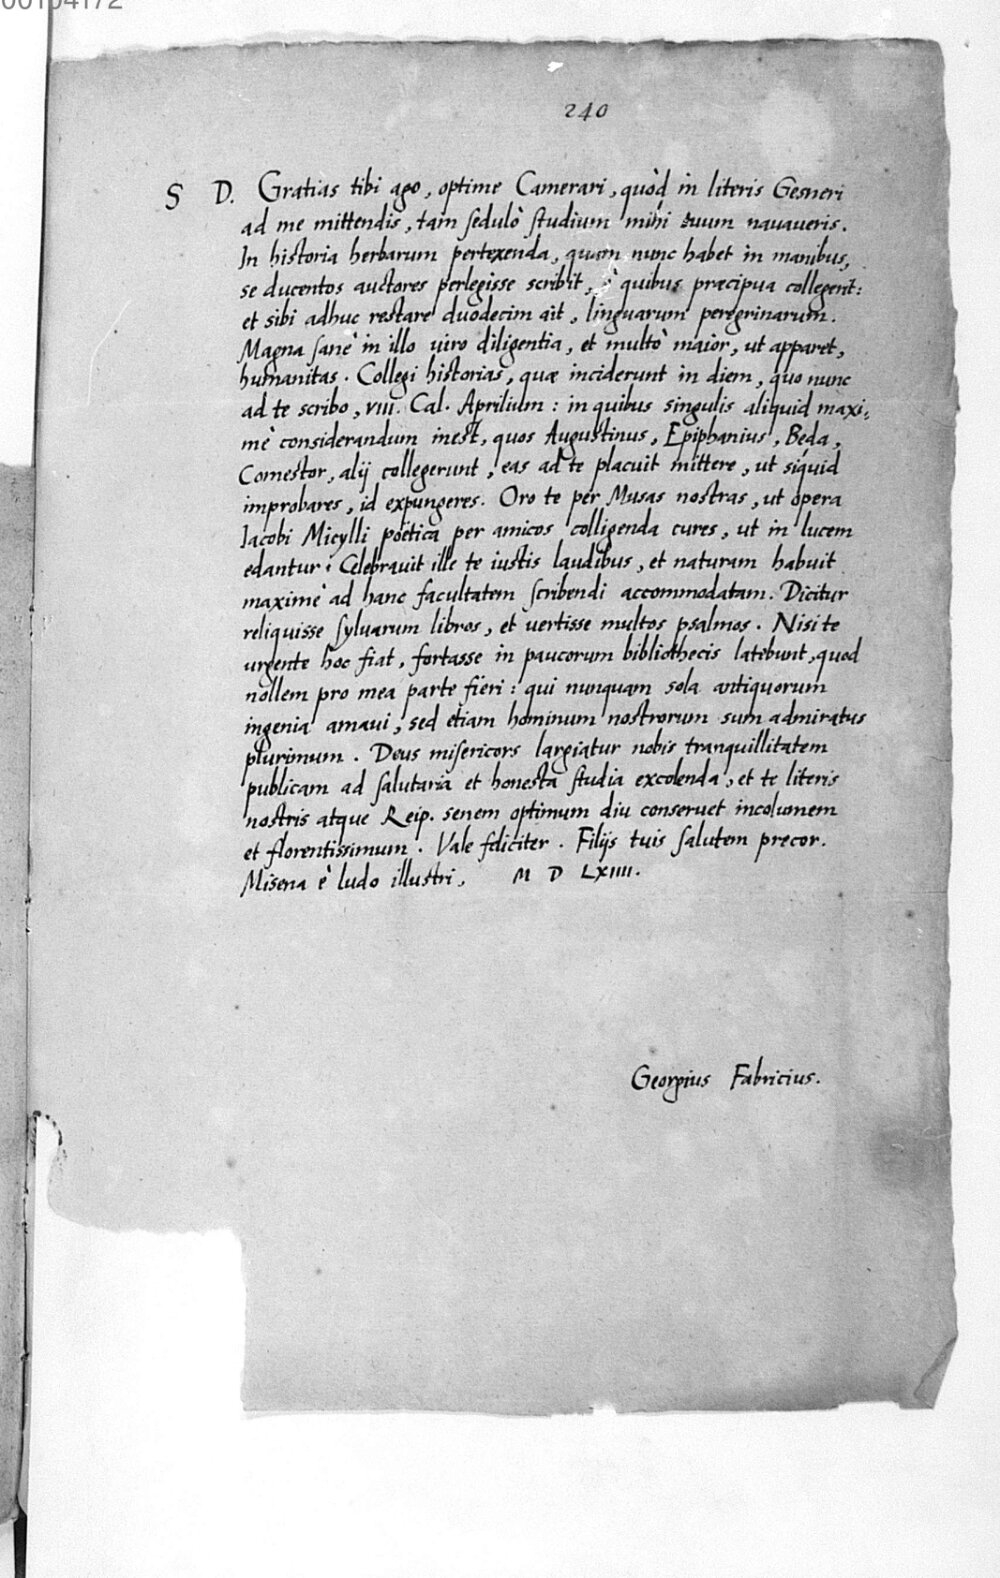 240
S D. Gratias tibi ago, optime Camerari, quòd in literis Gesneri
ad me mittendis, tam sedulò studium mihi tuum navaveris.
In historia herbarum pertexenda, quam nunc habet in manibus,
se ducentos auctores perlegisse scribit, è quibus præcipua collegerit:
et sibi adhuc restare duodecim ait, linguarum peregrinarum.
Magna sanè in illo viro diligentia, et multò maior, ut apparet,
humanitas. Collegi historias, quæ inciderunt in diem, quo nunc
ad te scribo, VIII. Cal. Aprilium: in quibus singulis aliquid maxi-
mè considerandum inest, quos Augustinus, Epiphanius, Beda,
Comestor, alij collegerunt, eas ad te placuit mittere, ut siquid
improbares, id expungeres. Oro te per Musas nostras, ut opera
Iacobi Micylli poëtica per amicos colligenda cures, ut in lucem
edantur: Celebravit ille te iustis laudibus, et naturam habuit
maximè ad hanc facultatem scribendi accommodatam. Dicitur
reliquisse sylvarum libros, et vertisse multos psalmos. Nisi te
urgente hoc fiat, fortasse in paucorum bibliothecis latebunt, quod
nollem pro mea parte fieri: qui nunquam sola antiquorum
ingenia amavi, sed etiam hominum nostrorum sum admiratus
plurimum. Deus misericors largiatur nobis tranquillitatem
publicam ad salutaria et honesta studia excolenda, et te literis
nostris atque Reip. senem optimum diu conservet incolumem
et florentissimum. Vale feliciter. Filijs tuis salutem precor.
Misena è ludo illustri, M D LXIIII.
Georgius Fabricius.